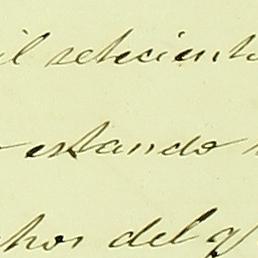 il setecient
estando
chos del q